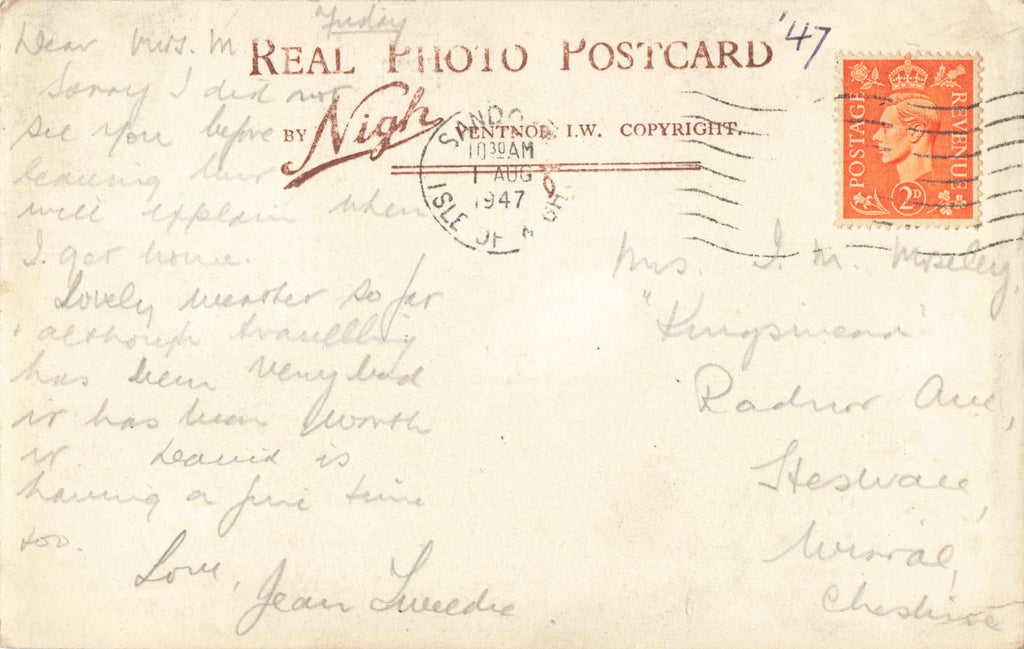 Friday
'47
Dear Mrs. M
REAL PHOTO POSTCARD
Sorry I did not
see you before
leaving but
will explain when
I get home.
Lovely weather so far
+ although travelling
has been very bad
it has been worth
it David is
having a fine time
too.
Love,
Jean Tweedie
BY Nigh VENTNOR I.W. COPYRIGHT.
SANDOWN
10 30 AM
1 AUG
1947
ISLE OF WIGHT
POSTAGE
REVENUE
2D
Mrs. I. M. Moseley,
"Kingsmead"
Radnor Ave,
Heswall,
Wirral,
Cheshire